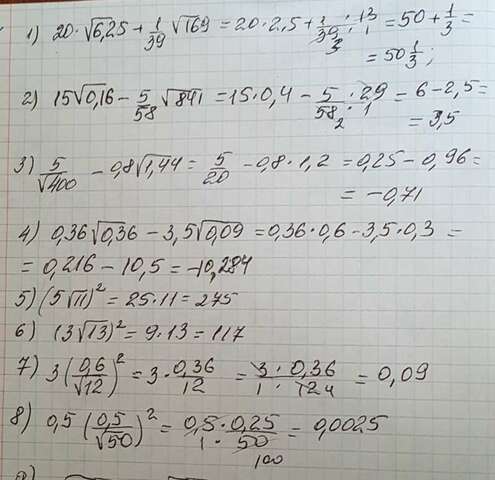 1) 20·√6,25 + 1/39 √169 = 20·2,5 + 1/39 · 13/1 = 50 + 1/3 =
3
= 50 1/3;
2) 15√0,16 − 5/58 √841 = 15·0,4 − 5/58 · 29/1 = 6 − 2,5 =
2
= 3,5
3) 5/√400 − 0,8√1,44 = 5/20 − 0,8·1,2 = 0,25 − 0,96 =
= −0,71
4) 0,36√0,36 − 3,5√0,09 = 0,36·0,6 − 3,5·0,3 =
= 0,216 − 10,5 = −10,284
5) (5√11)² = 25·11 = 275
6) (3√13)² = 9·13 = 117
7) 3(0,6/√12)² = 3·0,36/12 = 3/1 · 0,36/12 4 = 0,09
8) 0,5(0,5/√50)² = 0,5·0,25/1·50 = 0,0025
100